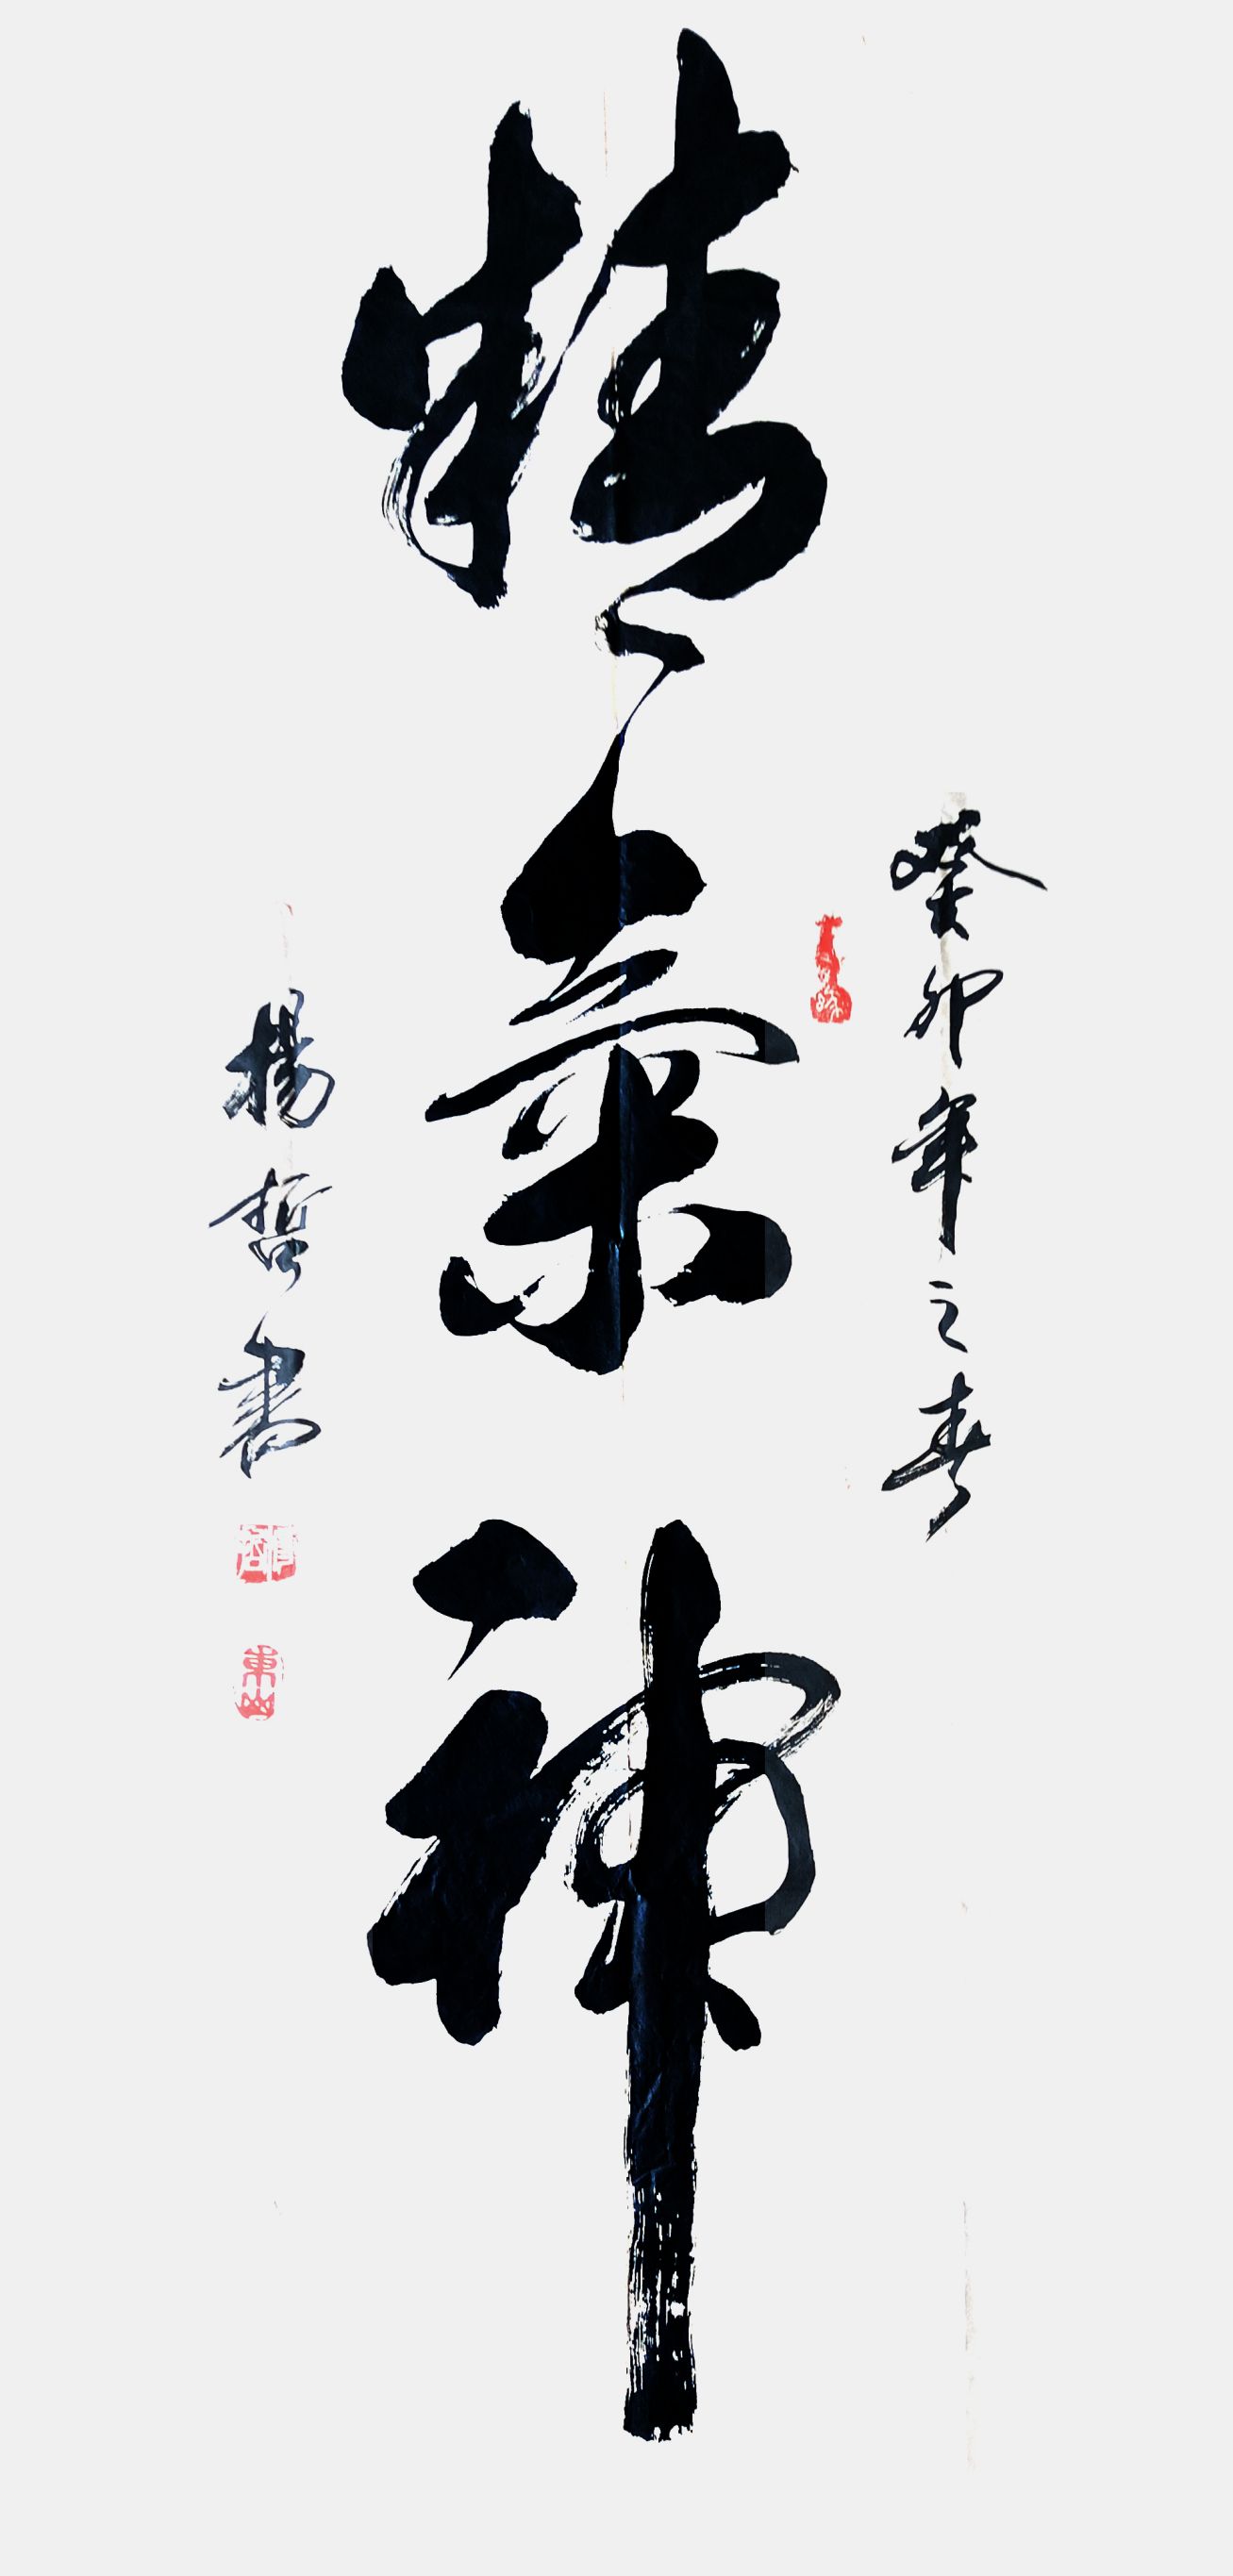 癸卯年之春
精氣神
楊哲書
東山